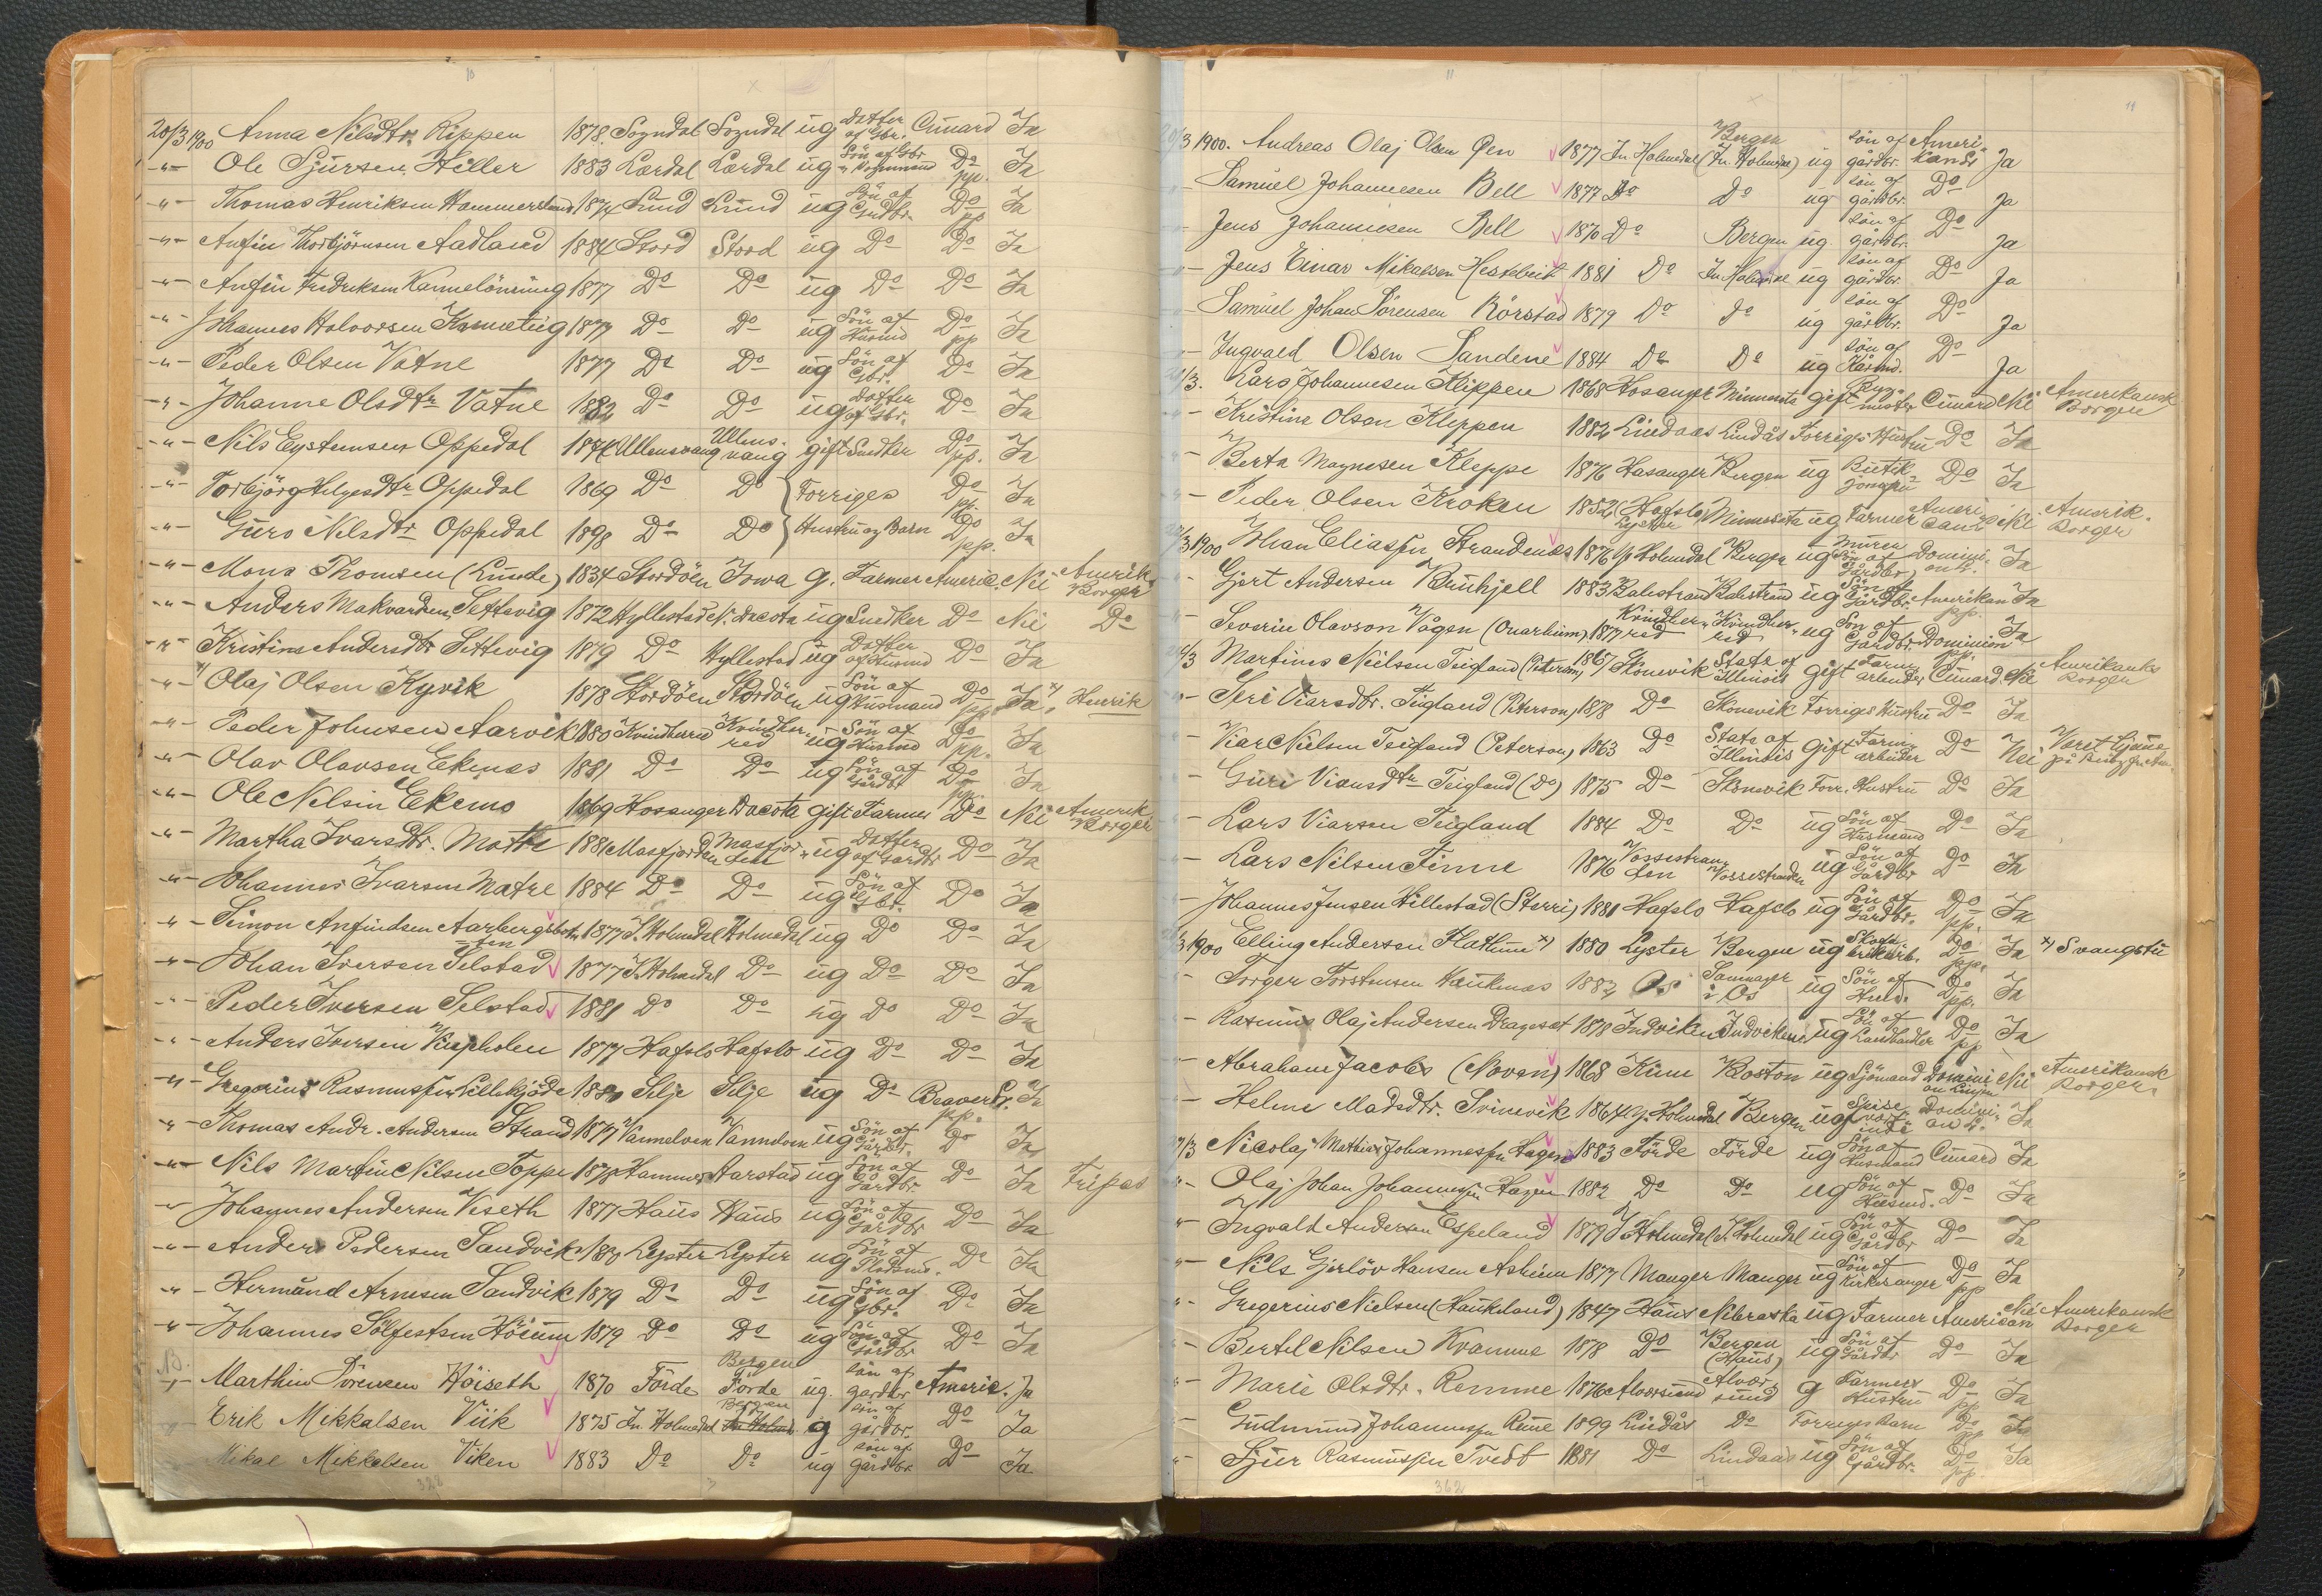 10
20/3 1900 Anna Nilsdtr. Rippen 1878 Sogndal Sogndal ug Datter af Gbr. Cunard Ja
-"- Ole Sjursen Hiller 1883 Lærdal Lærdal ug Sön af Gbr. Do pp. Ja
-"- Thomas Henriksen Hammersland 1874 Lund Lund ug Sön af Gudbr. Do pp Ja
-"- Anfin Thorbjörnsen Aadland 1884 Stord Stord ug Do Do Ja
-"- Anfin Fredriksen Kannelönning 1877 Do Do ug Do Do Ja
-"- Johannes Halvorsen 1877 Do Do ug Sön af Husmd Do pp Ja
-"- Peder Olsen Vatne 1877 Do Do ug Sön af Gbr. Do Ja
-"- Johanne Olsdtr Vatne 1882 Do Do ug Datter af Gbr. Do Ja
-"- Nils Eysteinsen Oppedal 1874 Ullensvang Ullensvang gift Snedker Do pp. Ja
-"- Torbjörg Helgesdtr Oppedal 1869 Do Do } Forriges Do pp. Ja
-"- Guro Nilsdtr Oppedal 1898 Do Do } Hustru og Barn Do pp. Ja
-"- Mons Thomsen (Lunde) 1834 Stordöen Iowa g. Farmer Americ. Nei Amerik. Borger
-"- Anders Makvardsen Settevig 1872 Hyllestad N. Dacota ug Snedker Do Nei Do
-"- Kristine Andersdtr Settevig 1879 Do Hyllestad ug Datter af Husmd Do Ja
-"- x) Olaj Olsen Kyvik 1878 Stordöen Stordöen ug Sön af Husmand Do pp. Ja x) Henrik
-"- Peder Johnsen Aarvik 1880 Kvindherred Kvindherred ug Sön af Husmd Do pp. Ja
-"- Olav Olavsen Ekenes 1881 Do Do ug Sön af Gårdbr Do pp. Ja
-"- Ole Nelsin Ekemo 1869 Hosanger Dacota gift Farmer Do Nei Amerik Borger
-"- Martha Ivarsdtr. Matre 1881 Masfjorden Masfjorden ug Datter af Gårdbr Do Ja
-"- Johannes Ivarsen Matre 1884 Do Do ug Sön af Gbr. Do Ja
-"- Simon Anfindsen Aarbergsbotten 1877 I. Holmedal Holmedal ug Do Do Ja
-"- Johan Iversen Selstad 1877 I. Holmedal Do ug Do Do Ja
-"- Peder Iversen Selstad 1881 Do Do ug Do Do Ja
-"- Anders Iversen 1877 Hafslo Hafslo ug Do Do Ja
-"- Gregorius Rasmussen Lillekjöde 1880 Selje Selje ug Do Beaver L. pp. Ja
-"- Thomas Andr. Andersen Strand 1877 Vannelven Vannelven ug Sön af Gårdbr. Do Ja
-"- Nils Martin Nilsen Toppe 1878 Hammer Aarstad ug Sön af Gårdbr. Do Ja Fripas
-"- Johannes Andersen Viseth 1877 Haus Haus ug Sön af Gårdbr Do Ja
-"- Anders Pedersen Sandvik 1880 Lyster Lyster ug Sön af Pladsmd. Do Ja
-"- Hermund Arnesen Sandvik 1879 Do Do ug Sön af Gbr. Do Ja
-"- Johannes Sölfestsen Höium 1879 Do Do ug Sön af Gårdbr Do Ja
-"- Marthin Sörensen Höiseth 1870 Förde Bergen Förde ug. sön af gårdbr Americ. Ja
Erik Mikkalsen Viik 1875 In. Holmedal Bergen In. Holmd. g sön af gårdbr. Do Ja
Mikal Mikkalsen Viken 1883 Do Do ug sön af gårdbr. Do Ja
322
11
11
/3 1900. Andreas Olaj Olsen Øen 1877 In. Holmedal Bergen (In. Holmedal) ug sön af gårdbr. Amerikansk Ja
Samuel Johannesen Bell 1877 Do Do ug sön af gårdbr. Do Ja
Jens Johannesen Bell 1870 Do Bergen ug. sön af gårdbr. Do Ja
Jens Einar Mikalsen Hestebeit 1881 Do In. Holmedal ug sön af gårdbr. Do Ja
Samuel Johan Sörensen Rörstad 1879 Do do ug sön af gårdbr. Do Ja
Ingvald Olsen Sandene 1884 Do Do ug sön af Kårmd. Do Ja
/3. Lars Johannesen Klippen 1868 Hosanger Minnesota gift Bygmester Cunard Nei Amerikansk Borger
Kristine Olsen Kleppen 1882 Lindaas Lindås Forriges Hustru Do Ja
Berta Magnesen Kleppe 1876 Hasanger Bergen ug Butikjomfru Do Ja
Peder Olsen Kroken 1852 (Hafslo) Lyster Minnesota ug Farmer American Nei Amerik. Borger
/3 1900 Johan Eliassen Strandenæs 1876 Y. Holmedal Bergen ug Murer Sön af Gårdbr Dominion L. Ja
Gjert Andersen 1883 Balestrand Balestrand ug Sön af Gårdbr. Amerikan pp. Ja
Severin Olavson Vågen (Onarheim) 1877 Kvindherred Kvindherred ug Sön af Gårdbr. Dominion pp. Ja
/3 Martines Neilsen Teigland (Peterson) 1867 Skonevik State of Illinois gift Farmarbeider Cunard Nei Amerikansk Borger
Siri Viarsdtr. Teigland (Peterson) 1878 Do Skonevik Forriges Hustru Do Ja
Viar Nielsen Teigland (Peterson) 1863 Do State of Illinois Gift Farmarbeider Do Nei
Guri Viarsdtr Teigland (Do) 1875 Do Skonevik Forr. Hustru Do Ja
Lars Viarsen Teigland 1884 Do Do ug Sön af Husmand Do Ja
Lars Nilsen Finne 1876 Vossestranden Vossestranden ug Sön af Gårdbr Do Ja
Johannes Jensen Hillestad (Sterri) 1881 Hafslo Hafslo ug Sön af Gårdbr. Do pp. Ja
/3 1900 Elling Andersen Flathun x) 1880 Lyster Bergen ug Skofabrikarb. Do pp. Ja x) Svangstu
Torger Torstensen Haukenæs 1882 Os Samnager i Os ug Sön af Husm. Do pp. Ja
Rasmus Olaj Andersen Drageset 1878 Indviken Indviken ug Sön af Landhandler Do pp Ja
Abraham Jacobs (Noven) 1868 Kinn Boston ug Sjömand Dominion Linjen Nei Amerikansk Borger
Heline Madsdtr. Svinevik 1864 Y. Holmedal Bergen ug Spisevertinde Dominion L. Ja
27/3 Nicolaj Mathias Johannessen Hagen 1883 Förde Förde ug Sön af Husmand Cunard Ja
Olaj Johan Johannessen Hagen 1882 Do Do ug Sön af Husmd. Do Ja
Ingvald Andersen Espeland 1879 I. Holmedal I. Holmedal ug Sön af Gårdbr Do Ja
Nils Gjerlöv Hansen Asheim 1877 Manger Manger ug Sön af Kirkesanger Do pp Ja
Gregerius Nielsen (Haukeland) 1847 Haus Nebraska ug Farmer American Nei Amerikansk Borger
Bertel Nilsen Kvamme 1878 Do Bergen (Haus) ug Sön af Gårdbr Do Ja
Marie Olsdtr. Remme 1876 Alversund Alversund g Farmers Hustru Do pp Ja
Gudmund Johannessen 1899 Lindås Do Forriges Barn Do pp Ja
Sjur Rasmussen Tvedt 1881 Do Lindaas ug Sön af Gårdbr. Do pp Ja
362